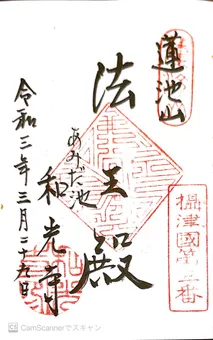 蓮池山
法王殿
あみだ池
和光寺
令和三年三月二十日
攝津國第三番
CS CamScannerでスキャン